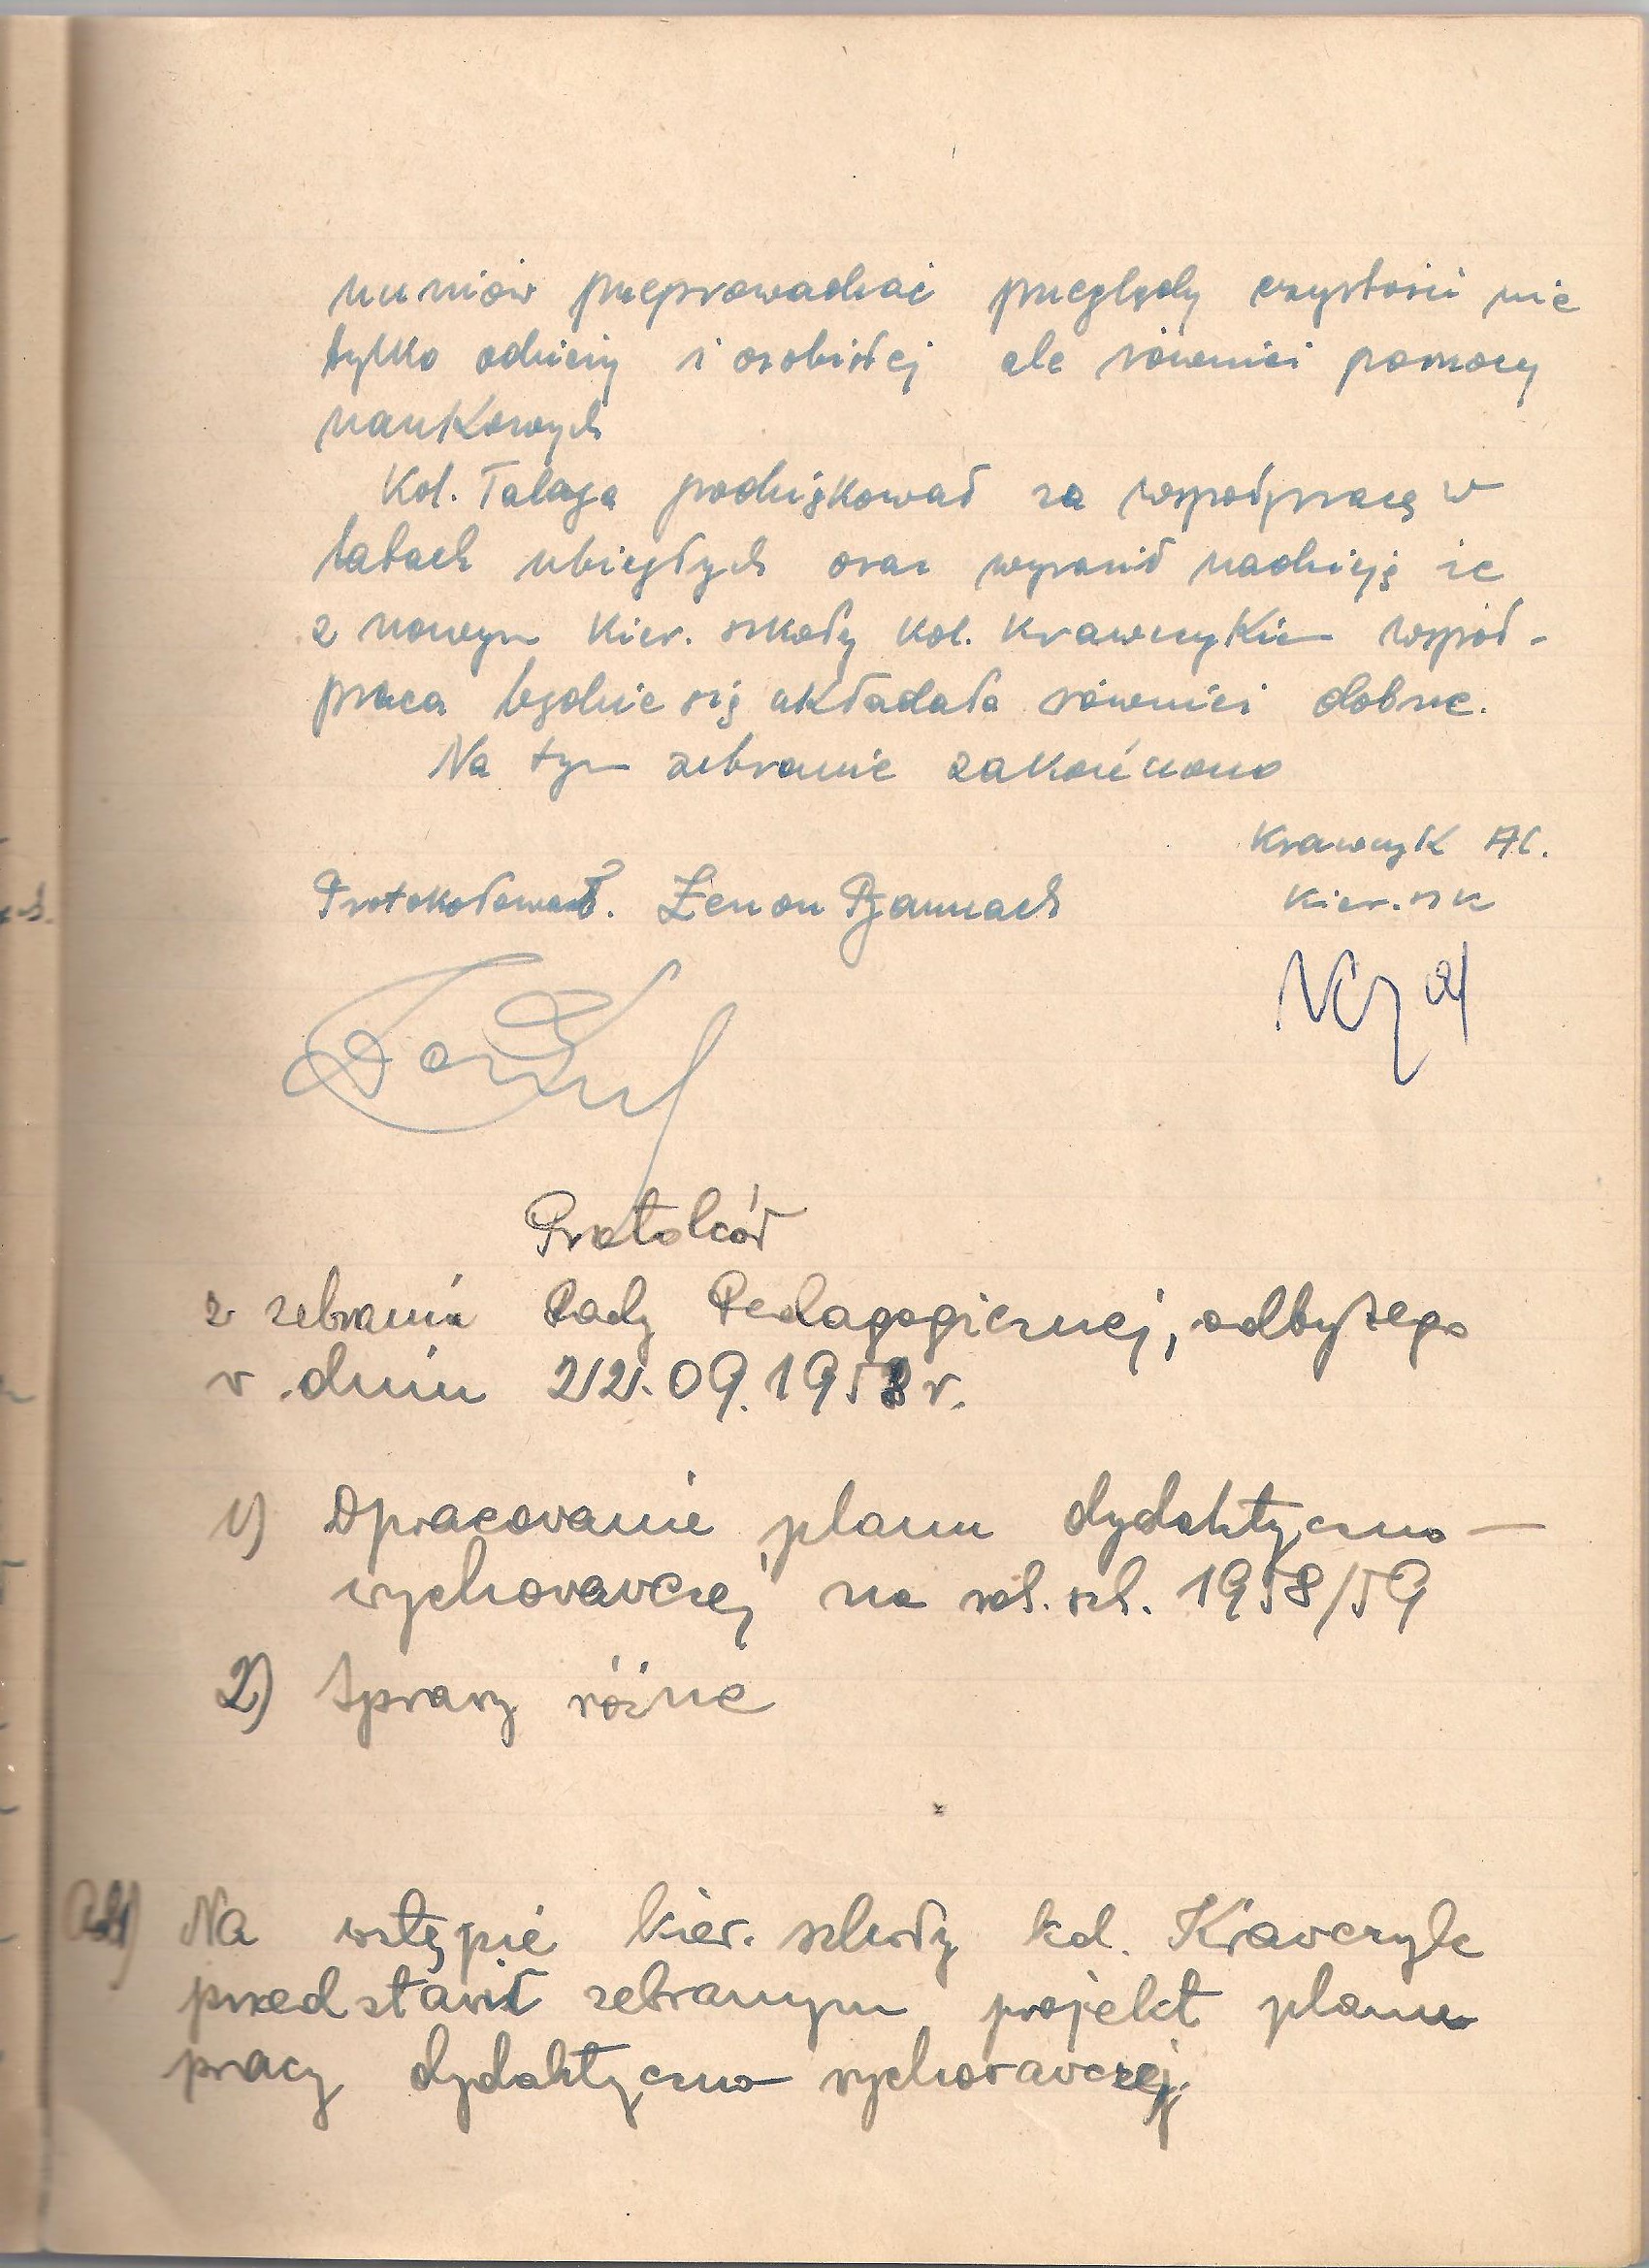 uczniów przeprowadzać przeglądy czystości nie
tylko odzieży i osobistej ale również pomocy
naukowych
Kol. Talaga podziękował za współpracę w
latach ubiegłych oraz wyraził nadzieję że
z nowym kier. szkoły kol. Krawczykiem współ-
praca będzie się układała również dobrze.
Na tym zebranie zakończono
Krawczyk Al.
Protokołował. Zenon
Kier. szk
Protokół
z zebrania Rady Pedagogicznej, odbytego
w dniu 22.09.1958 r.
1) Opracowanie planu dydaktyczno-
wychowawczej na rok. szk. 1958/59
2) Sprawy różne
Ad1) Na wstępie kier. szkoły kol. Krawczyk
przedstawił zebranym projekt planu
pracy dydaktyczno wychowawczej.